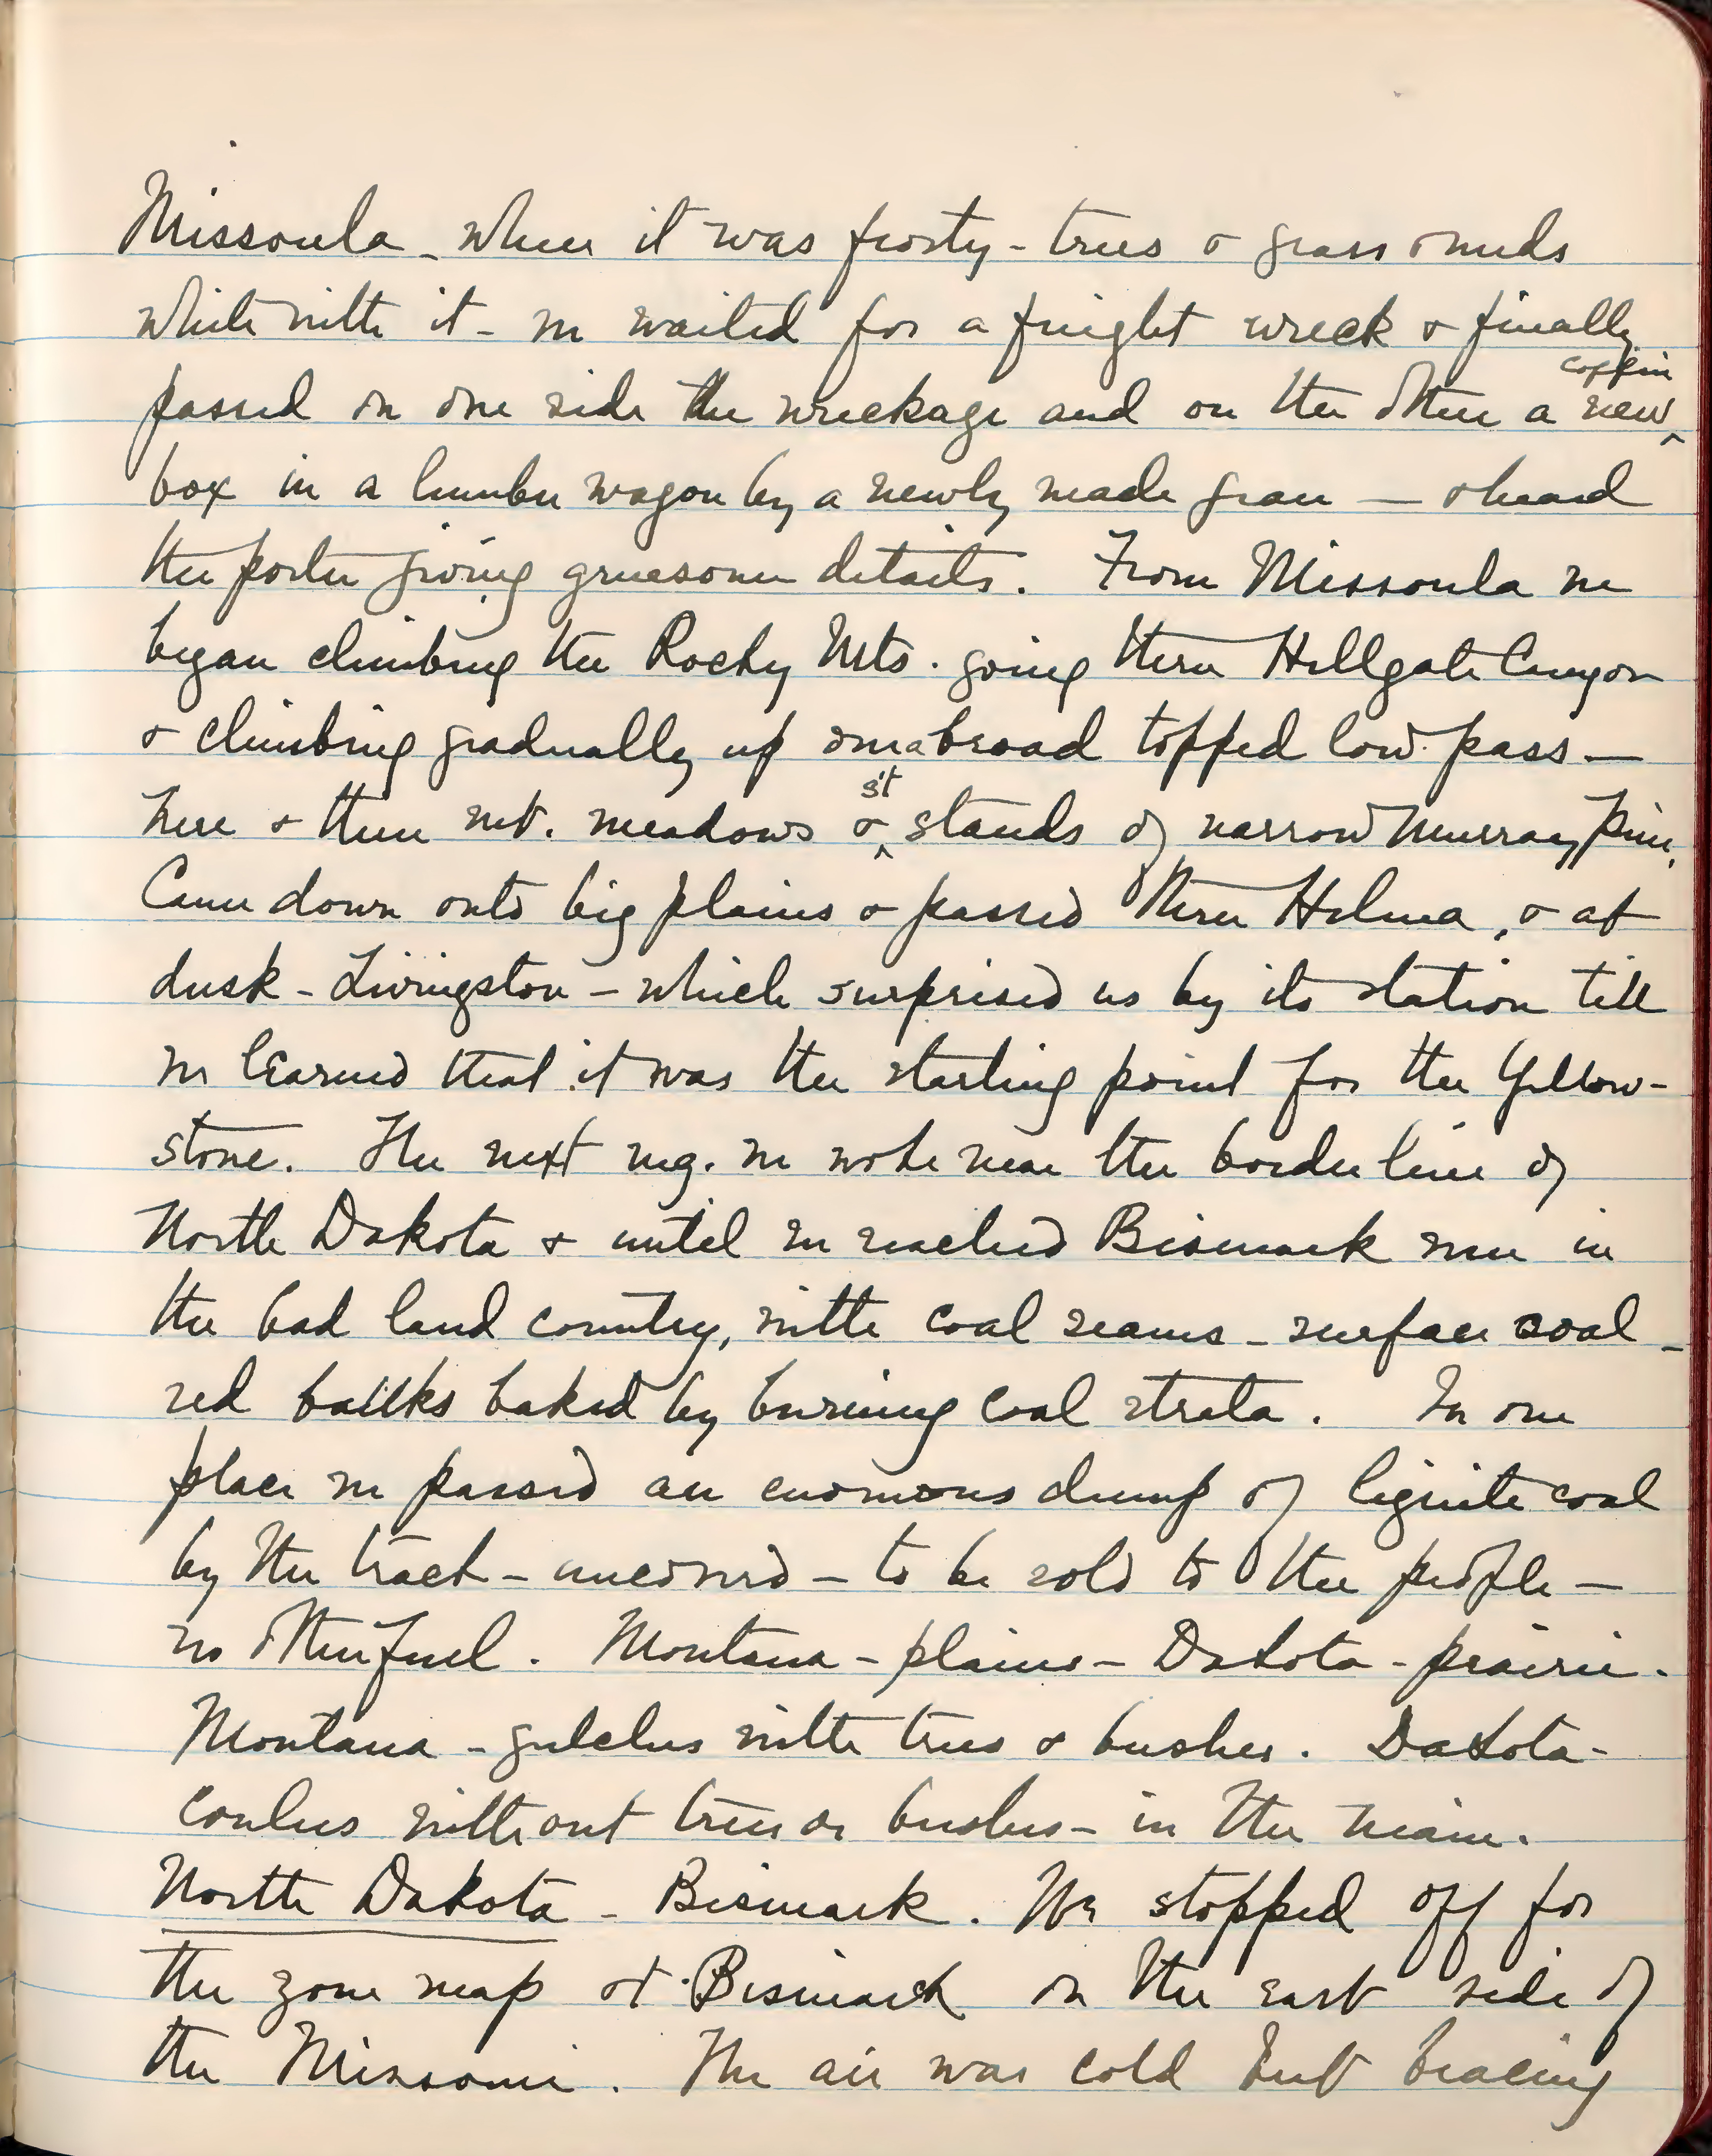 Missoula - where it was frosty - trees & grass & weeds
white with it - we waited for a freight wreck & finally
passed on one side the wreckage and on the other a new coffin
box in a lumber wagon by a newly made grave — & heard
the porter giving gruesome details. From Missoula we
began climbing the Rocky Mts. going thru Hellgate Canyon
& climbing gradually up over a broad topped low pass —
here & there mt. meadows & st stands of narrow Murray pine.
Came down onto big plains & passed thru Helena, & at
dusk - Livingston - which surprised us by its station till
we learned that it was the starting point for the Yellow-
stone. The next mg. we woke near the border line of
North Dakota & until we reached Bismark were in
the bad land country, with coal seams - surface coal -
red banks baked by burning coal strata. In one
place we passed an enormous dump of lignite coal
by the track - uncovered - to be sold to the people —
no other fuel. Montana - plains - Dakota - prairie.
Montana - gulches with trees & bushes. Dakota -
coulees without trees or bushes - in the main.
North Dakota - Bismark. We stopped off for
the zone map at Bismarck on the east side of
the Missouri. The air was cold but bracing